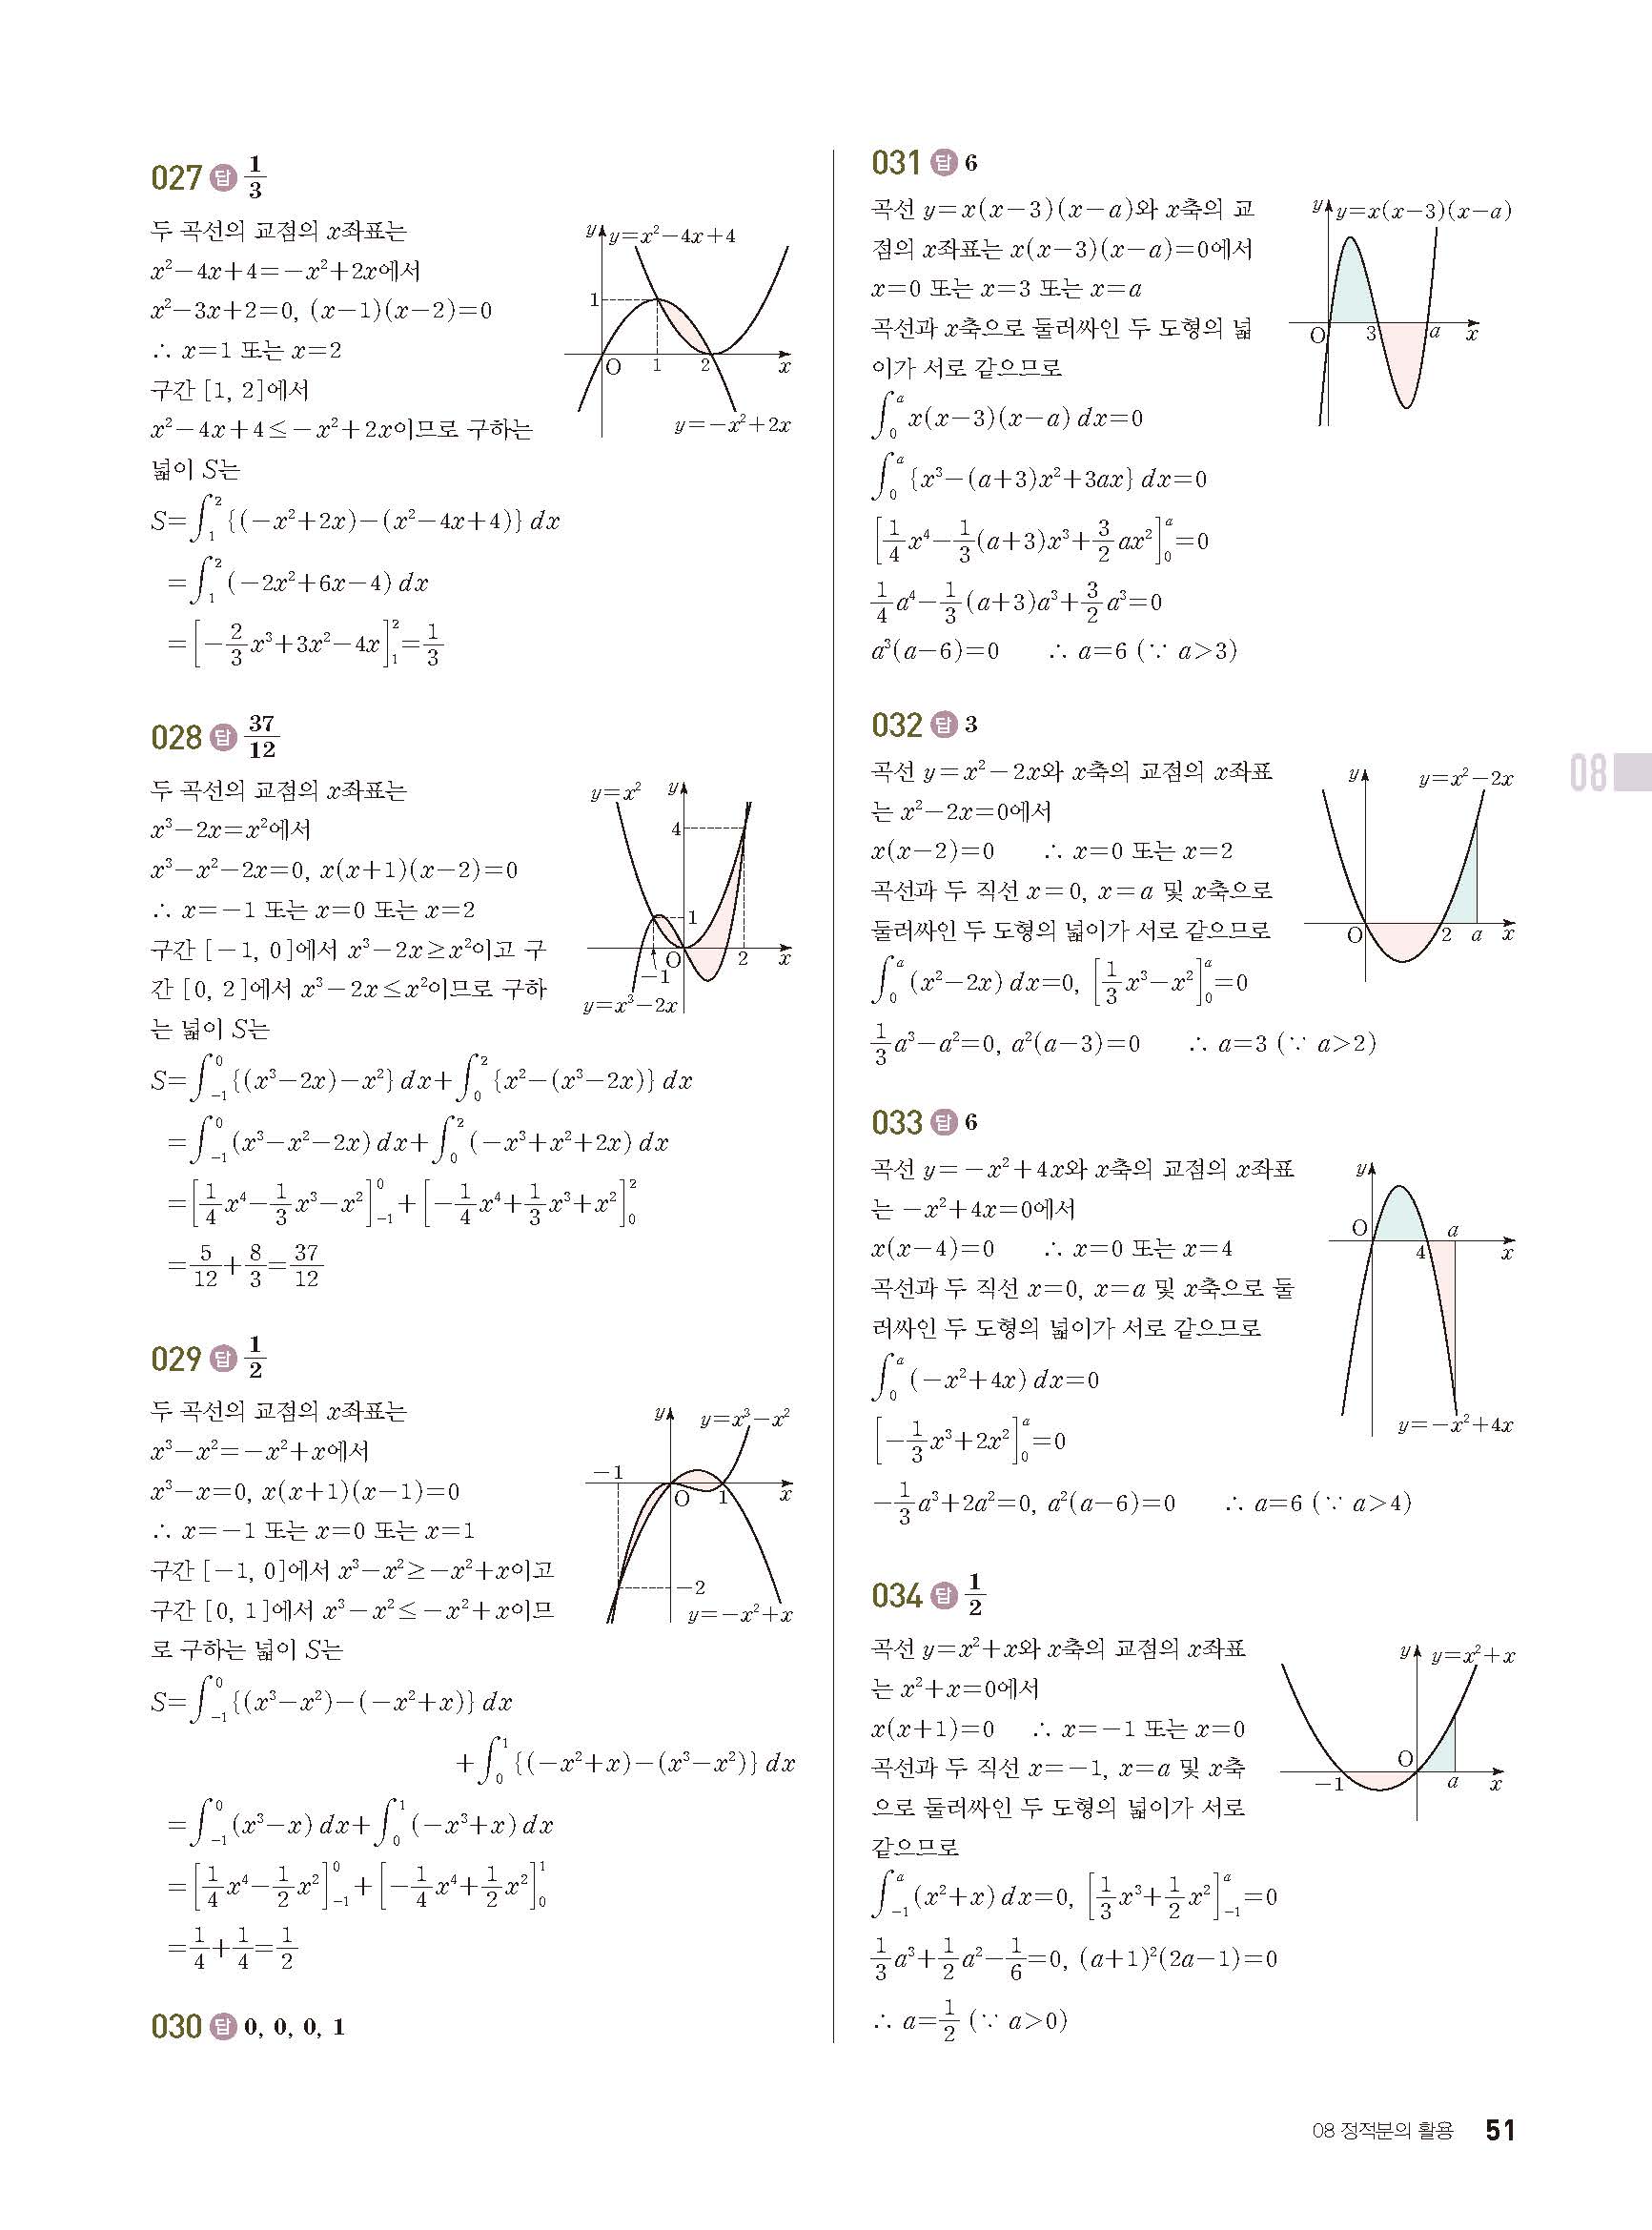 027 답 1/3
두 곡선의 교점의 x좌표는
x²-4x+4=-x²+2x에서
x²-3x+2=0, (x-1)(x-2)=0
∴ x=1 또는 x=2
구간 [1, 2]에서
x²-4x+4≤-x²+2x이므로 구하는
넓이 S는
y y=x²-4x+4
1
O 1 2 x
y=-x²+2x
S=∫₁² {(-x²+2x)-(x²-4x+4)} dx
=∫₁² (-2x²+6x-4) dx
=[-2/3 x³+3x²-4x]₁²=1/3
028 답 37/12
두 곡선의 교점의 x좌표는
x³-2x=x²에서
x³-x²-2x=0, x(x+1)(x-2)=0
∴ x=-1 또는 x=0 또는 x=2
구간 [-1, 0]에서 x³-2x≥x²이고 구
간 [0, 2]에서 x³-2x≤x²이므로 구하
는 넓이 S는
y=x² y
4
1
O 2 x
-1
y=x³-2x
S=∫₋₁⁰ {(x³-2x)-x²} dx+∫₀² {x²-(x³-2x)} dx
=∫₋₁⁰ (x³-x²-2x) dx+∫₀² (-x³+x²+2x) dx
=[1/4 x⁴-1/3 x³-x²]₋₁⁰+[-1/4 x⁴+1/3 x³+x²]₀²
=5/12+8/3=37/12
029 답 1/2
두 곡선의 교점의 x좌표는
x³-x²=-x²+x에서
x³-x=0, x(x+1)(x-1)=0
∴ x=-1 또는 x=0 또는 x=1
구간 [-1, 0]에서 x³-x²≥-x²+x이고
구간 [0, 1]에서 x³-x²≤-x²+x이므
로 구하는 넓이 S는
y y=x³-x²
-1
O 1 x
-2
y=-x²+x
S=∫₋₁⁰ {(x³-x²)-(-x²+x)} dx
+∫₀¹ {(-x²+x)-(x³-x²)} dx
=∫₋₁⁰ (x³-x) dx+∫₀¹ (-x³+x) dx
=[1/4 x⁴-1/2 x²]₋₁⁰+[-1/4 x⁴+1/2 x²]₀¹
=1/4+1/4=1/2
030 답 0, 0, 0, 1
031 답 6
곡선 y=x(x-3)(x-a)와 x축의 교
점의 x좌표는 x(x-3)(x-a)=0에서
x=0 또는 x=3 또는 x=a
곡선과 x축으로 둘러싸인 두 도형의 넓
이가 서로 같으므로
y y=x(x-3)(x-a)
O 3 a x
∫₀ᵃ x(x-3)(x-a) dx=0
∫₀ᵃ {x³-(a+3)x²+3ax} dx=0
[1/4 x⁴-1/3 (a+3)x³+3/2 ax²]₀ᵃ=0
1/4 a⁴-1/3 (a+3)a³+3/2 a³=0
a³(a-6)=0 ∴ a=6 (∵ a>3)
032 답 3
곡선 y=x²-2x와 x축의 교점의 x좌표
는 x²-2x=0에서
x(x-2)=0 ∴ x=0 또는 x=2
곡선과 두 직선 x=0, x=a 및 x축으로
둘러싸인 두 도형의 넓이가 서로 같으므로
y y=x²-2x
O 2 a x
∫₀ᵃ (x²-2x) dx=0, [1/3 x³-x²]₀ᵃ=0
1/3 a³-a²=0, a²(a-3)=0 ∴ a=3 (∵ a>2)
033 답 6
곡선 y=-x²+4x와 x축의 교점의 x좌표
는 -x²+4x=0에서
x(x-4)=0 ∴ x=0 또는 x=4
곡선과 두 직선 x=0, x=a 및 x축으로 둘
러싸인 두 도형의 넓이가 서로 같으므로
y
O a
4 x
y=-x²+4x
∫₀ᵃ (-x²+4x) dx=0
[-1/3 x³+2x²]₀ᵃ=0
-1/3 a³+2a²=0, a²(a-6)=0 ∴ a=6 (∵ a>4)
034 답 1/2
곡선 y=x²+x와 x축의 교점의 x좌표
는 x²+x=0에서
x(x+1)=0 ∴ x=-1 또는 x=0
곡선과 두 직선 x=-1, x=a 및 x축
으로 둘러싸인 두 도형의 넓이가 서로
같으므로
y y=x²+x
O
-1 a x
∫₋₁ᵃ (x²+x) dx=0, [1/3 x³+1/2 x²]₋₁ᵃ=0
1/3 a³+1/2 a²-1/6=0, (a+1)²(2a-1)=0
∴ a=1/2 (∵ a>0)
08
08 정적분의 활용 51